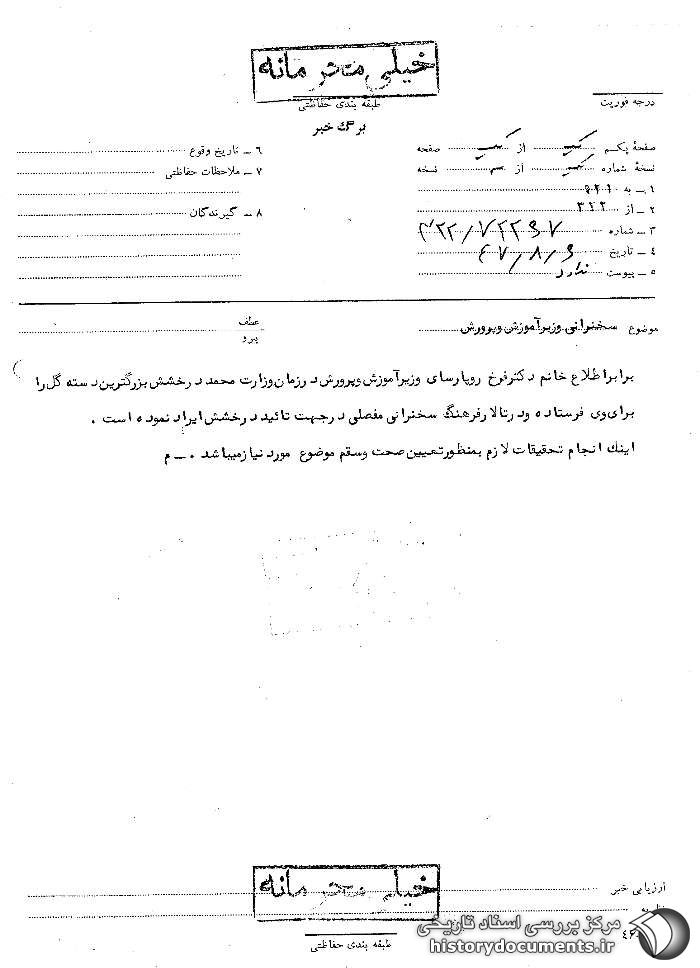 خیلی محرمانه
طبقه بندی حفاظتی
درجه فوریت
برگ خبر
صفحهٔ یکم یک از یک صفحه
نسخهٔ شماره یک از نسخه
۱ ـ به ۹۲۱
۲ ـ از ۳۲۲
۳ ـ شماره ۳۲۲/۷۲۲۹۷
۴ ـ تاریخ ۴۷/۸/۹
۵ ـ پیوست ندارد
۶ ـ تاریخ وقوع
۷ ـ ملاحظات حفاظتی
۸ ـ گیرندگان
موضوع سخنرانی وزیر آموزش و پرورش
عطف
پیرو
برابر اطلاع خانم دکتر فرخ رو پارسای وزیر آموزش و پرورش در زمان وزارت محمد درخشش بزرگترین دسته گل را
برای وی فرستاده و در تالار فرهنگ سخنرانی مفصلی در جهت تائید درخشش ایراد نموده است .
اینك انجام تحقیقات لازم بمنظور تعیین صحت و سقم موضوع مورد نیاز میباشد . ـ م
خیلی محرمانه
طبقه بندی حفاظتی
ارزیابی خبر
مرکز بررسی اسناد تاریخی
historydocuments.ir